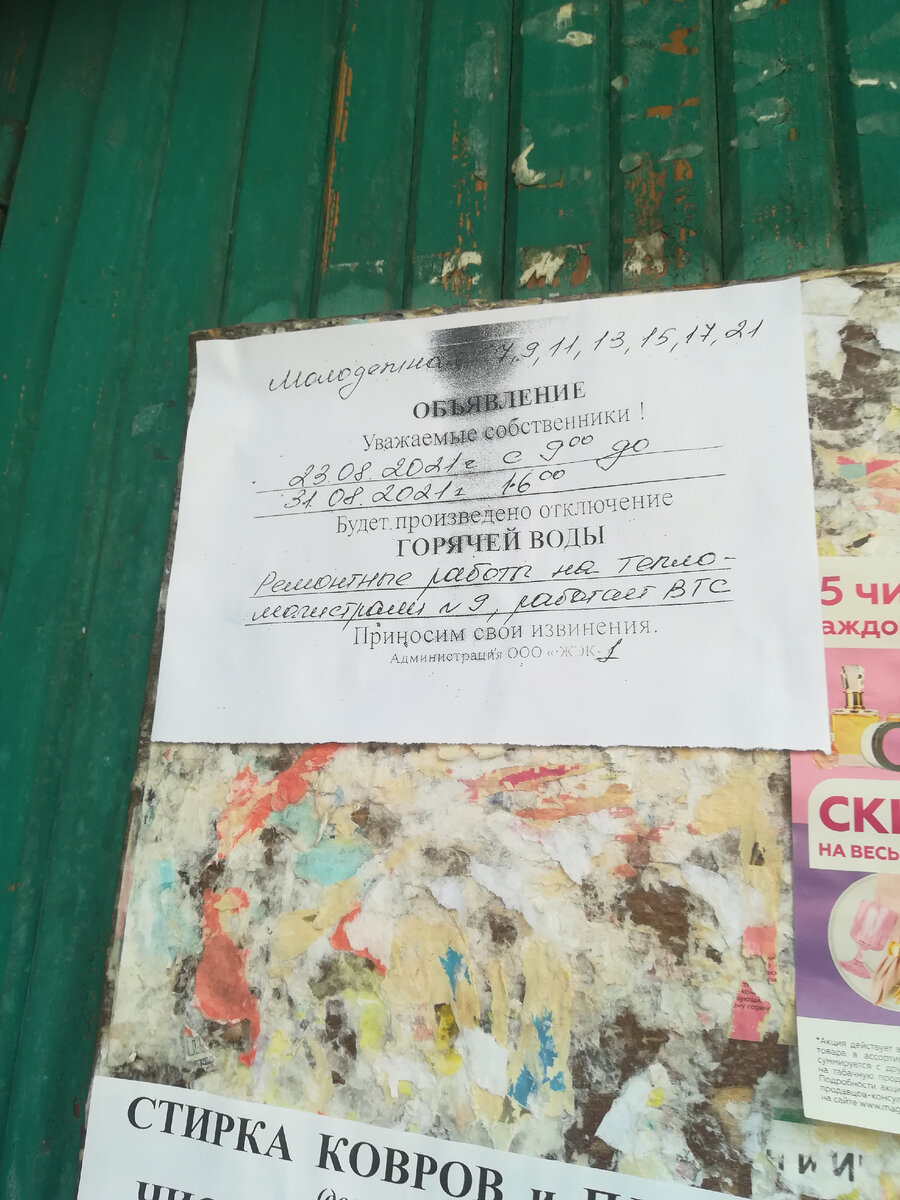 Молодежная 7,9,11,13,15,17,21
ОБЪЯВЛЕНИЕ
Уважаемые собственники !
23.08.2021г с 9 00 до
31.08.2021г 16 00
Будет произведено отключение
ГОРЯЧЕЙ ВОДЫ
Ремонтные работы на тепло-
магистрали №9, работает ВТС
Приносим свои извинения.
Администрация ООО «ЖЭК-1
5 ЧИ
аждо
СКИ
НА ВЕСЬ
*Акция действует в
товара в ассорти
суммируется с дру
на табачную прод
Подробности акци
продавцов-консул
на сайте www.mag
СТИРКА КОВРОВ и ПЛ
ЧИС